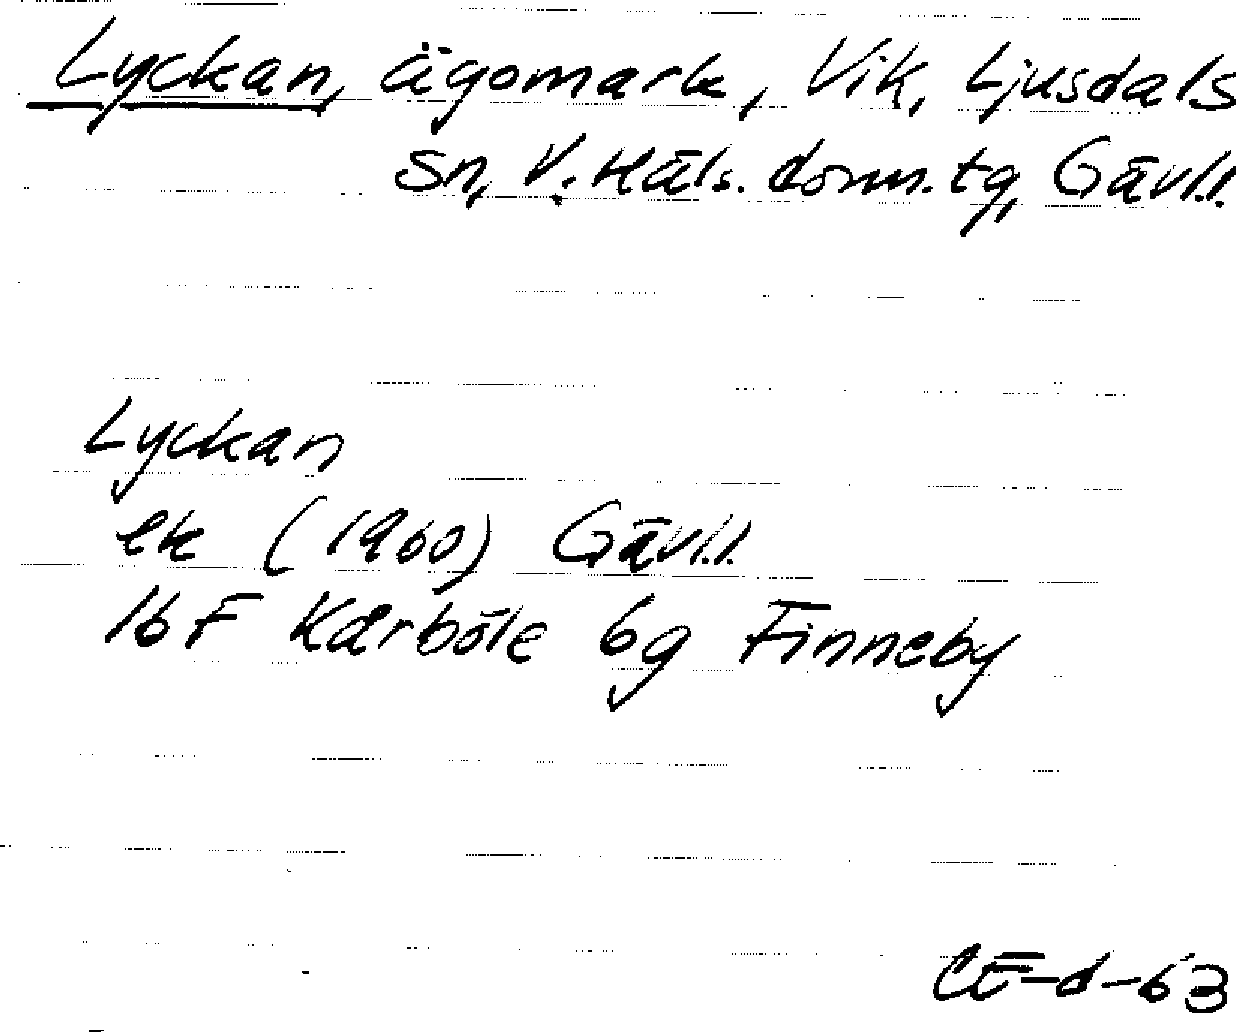 Lyckan, ägomark, Vik, Ljusdals
sn, V. Häls. doms. tg, Gävl.l.
Lyckan
ek (1960) Gävl.l.
16 F Kårböle 6g Finneby
CE-d-63